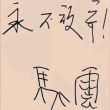 永不放弃！
馬雲